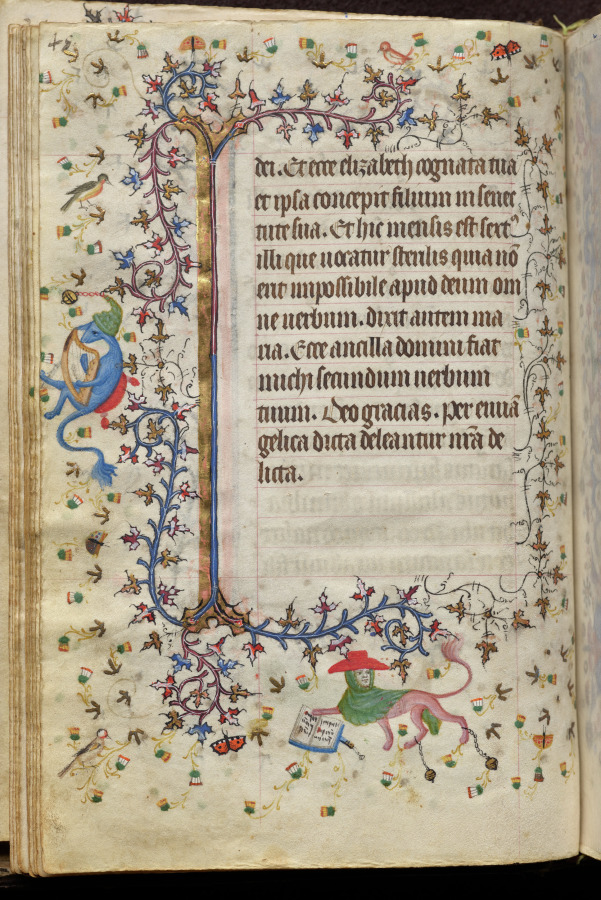 dei . Et ecce elizabeth cognata tua
et ipsa concepit filium in senec
tute sua . Et hic mensis est sext᾿
illi que uocatur sterilis quia nō
erit impossibile apud deum om
ne uerbum . dixit autem ma
ria . Ecce ancilla domini fiat
michi secundum uerbum
tuum . Deo gracias . Per euuā
gelica dicta deleantur nr̄a de
licta .